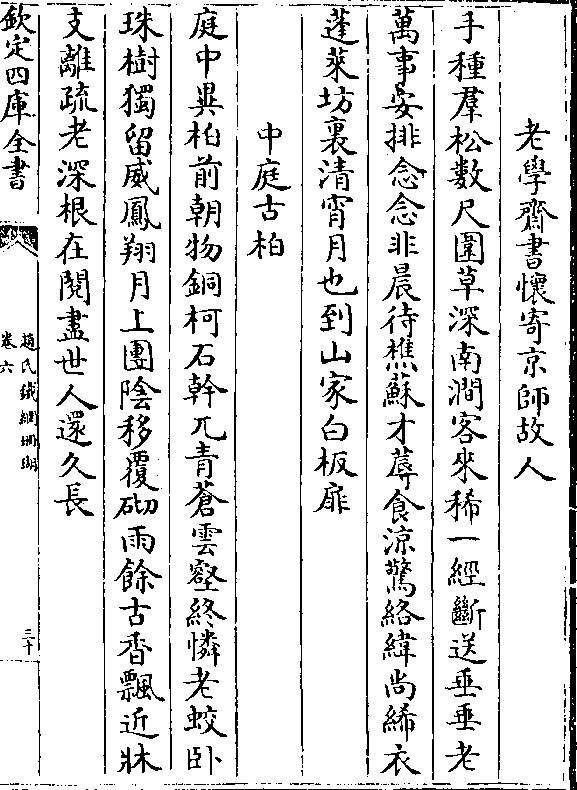 老學齋書懷寄京師故人
手種羣松數尺圍草深南澗客來稀一經斷送垂垂老
萬事安排念念非晨待樵蘇才蓐食涼驚絡緯尚絺衣
蓬萊坊裏清宵月也到山家白板扉
中庭古柏
庭中異柏前朝物銅柯石幹兀青蒼雲壑終憐老蛟卧
珠樹獨留威鳳翔月上團陰移覆砌雨餘古香飄近牀
支離疏老深根在閱盡世人還久長
欽定四庫全書
趙氏鐵網珊瑚
卷六
三十